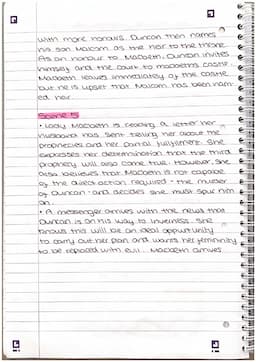 with more honours. Duncan then names
his son Malcom as the heir to the throne.
As an honour to Macbeth, Duncan invites
himself and the court to macbeths castle.
Macbeth leaves immediately of the castle
but he is upset that Malcom has been nam-
ed heir.
Scene 5
• Lady Macbeth is reading a letter her
husband has sent telling her about the
prophecies and her partial fulfilment. She
expresses her determination that the third
prophecy will also come true. However, she
also believes that Macbeth is not capable
of the direct action required - the murder
of Duncan - and decides she must spur him
on.
• A messenger arrives with the news that
Duncan is on his way to Inverness. She
knows this will be an ideal oppurtunity
to carry out her plan and wants her femininity
to be replaced with evil. Macbeth arrives